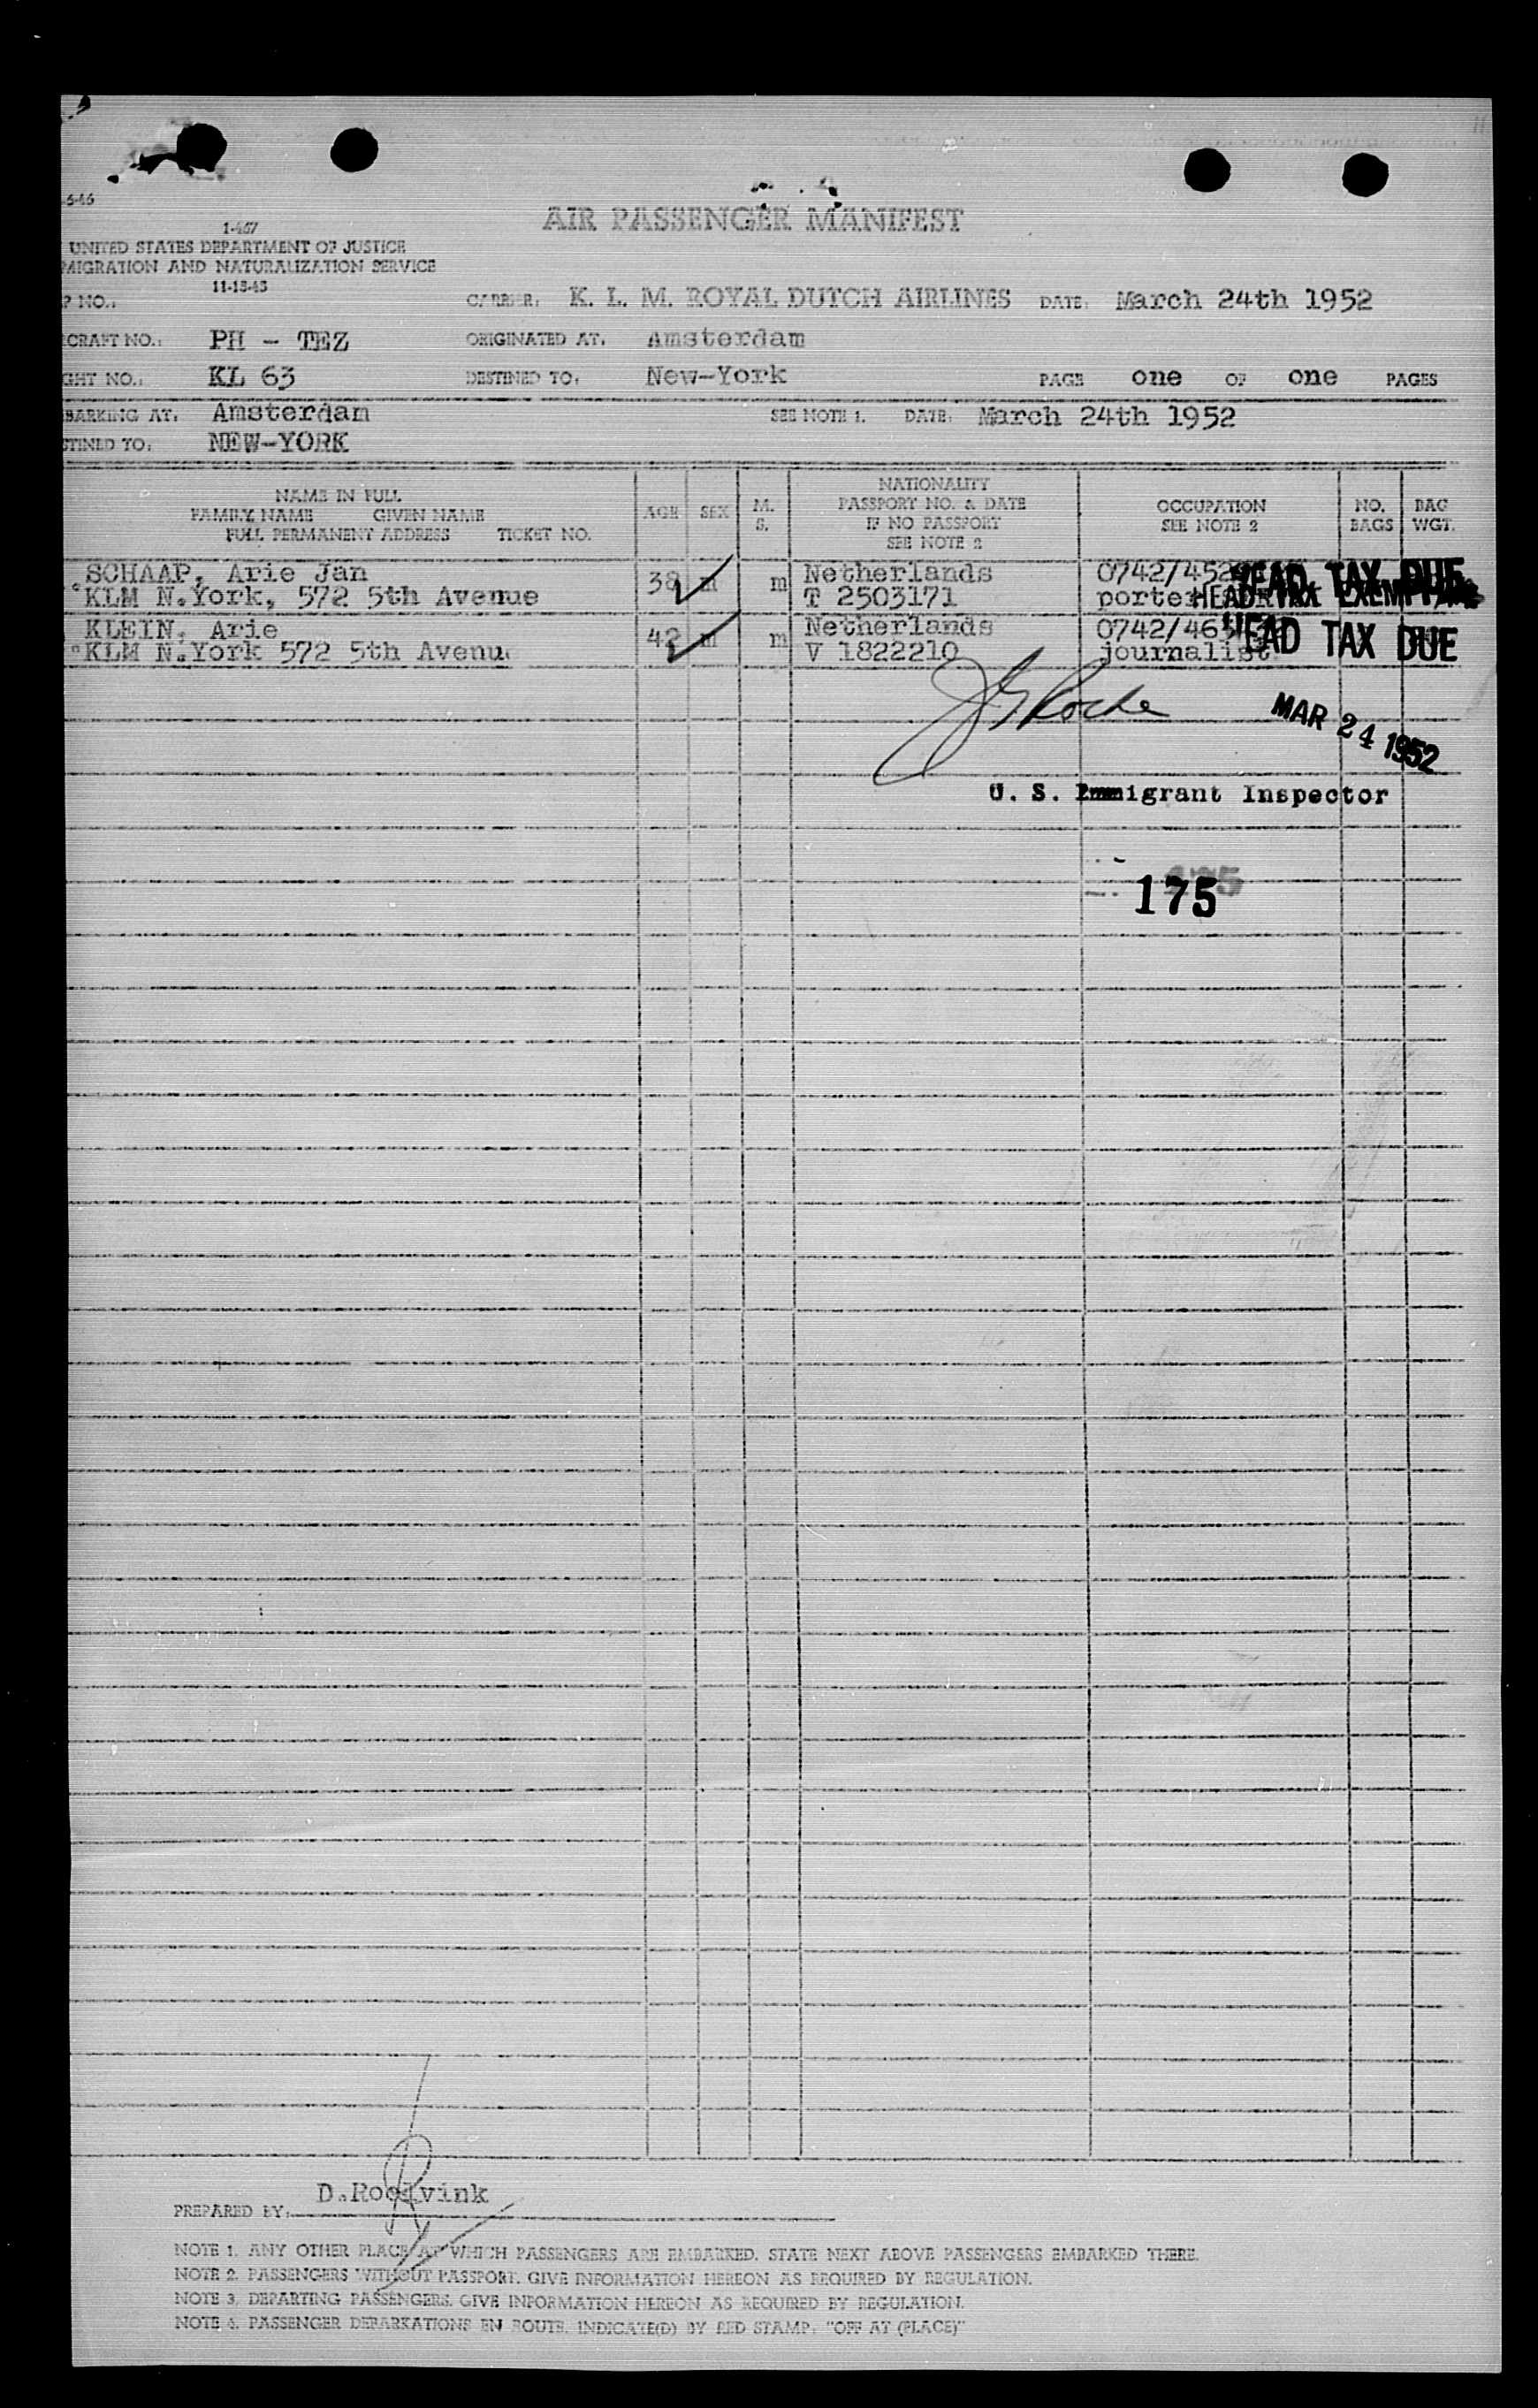 1-467
AIR PASSENGER MANIFEST
UNITED STATES DEPARTMENT OF JUSTICE
MIGRATION AND NATURALIZATION SERVICE
11-15-45
P NO.:
CARRIER: K. L. M. ROYAL DUTCH AIRLINES DATE: March 24th 1952
CRAFT NO.: PH - TEZ ORIGINATED AT: Amsterdam
GHT NO.: KL 63 DESTINED TO: New-York PAGE one OF one PAGES
BARKING AT: Amsterdam SEE NOTE 1. DATE: March 24th 1952
TINED TO: NEW-YORK
NAME IN FULL
FAMILY NAME GIVEN NAME
FULL PERMANENT ADDRESS TICKET NO.
AGE
SEX
M.
S.
NATIONALITY
PASSPORT NO. & DATE
IF NO PASSPORT
SEE NOTE 2
OCCUPATION
SEE NOTE 2
NO.
BAGS
BAG
WGT.
SCHAAP, Arie Jan 38 m m Netherlands HEAD TAX DUE
KLM N.York, 572 5th Avenue T 2503171 porter HEAD TAX EXEMPT
KLEIN, Arie 42 m m Netherlands HEAD TAX DUE
KLM N.York 572 5th Avenue V 1822210 journalist
J G Roche
MAR 24 1952
U. S. Immigrant Inspector
175
175
PREPARED BY: D.Roelvink
NOTE 1. ANY OTHER PLACE AT WHICH PASSENGERS ARE EMBARKED. STATE NEXT ABOVE PASSENGERS EMBARKED THERE.
NOTE 2. PASSENGERS WITHOUT PASSPORT. GIVE INFORMATION HEREON AS REQUIRED BY REGULATION.
NOTE 3. DEPARTING PASSENGERS. GIVE INFORMATION HEREON AS REQUIRED BY REGULATION.
NOTE 4. PASSENGER DEBARKATIONS EN ROUTE. INDICATE(D) BY RED STAMP. "OFF AT (PLACE)"